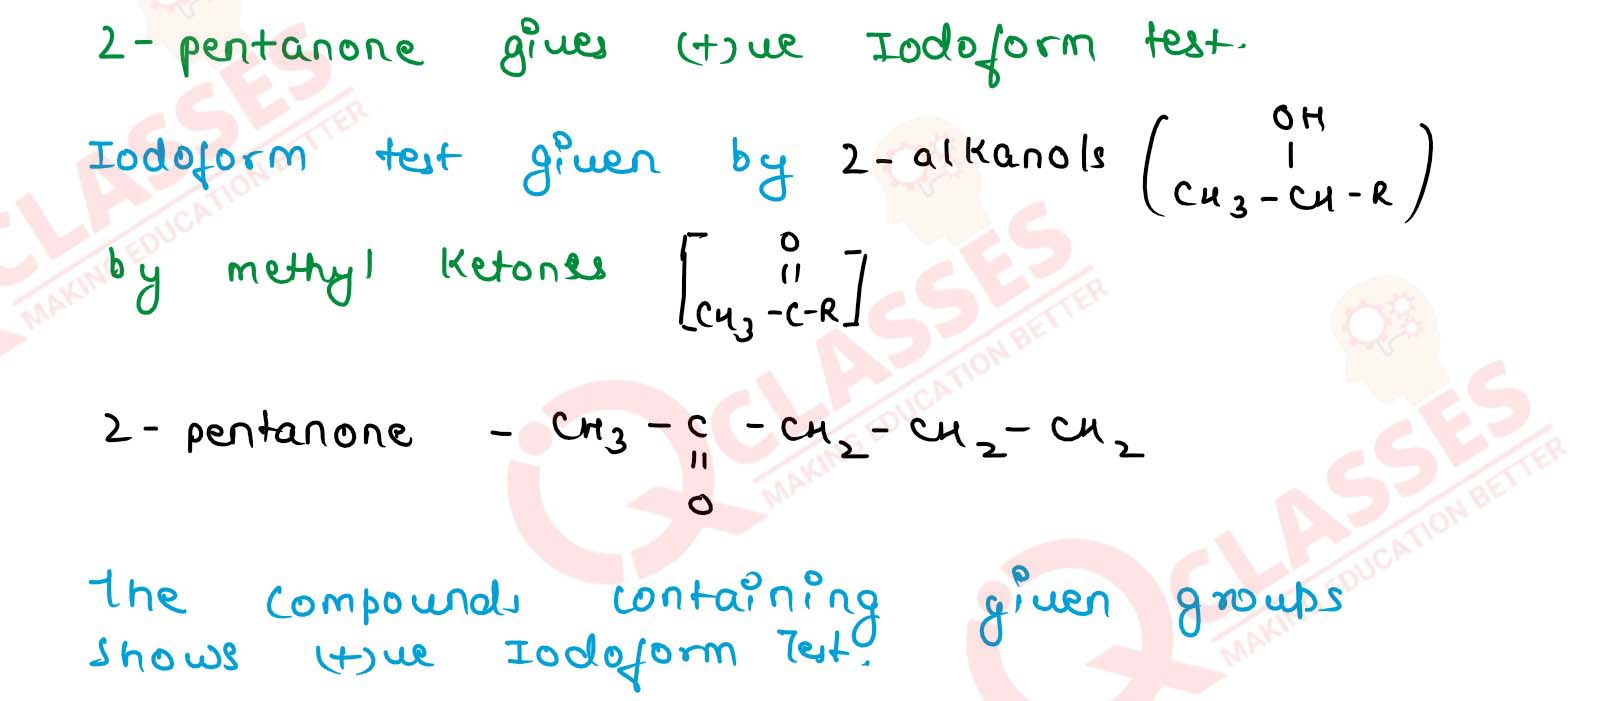 2- pentanone gives (+)ve Iodoform test.
Iodoform test given by 2- alkanols ( CH3 - CH - R )
OH
by methyl Ketones [ CH3 - C - R ]
O
2- pentanone - CH3 - C - CH2 - CH2 - CH2
O
The compounds containing given groups
shows (+)ve Iodoform Test.
CLASSES
MAKING EDUCATION BETTER
CLASSES
MAKING EDUCATION BETTER
CLASSES
MAKING EDUCATION BETTER